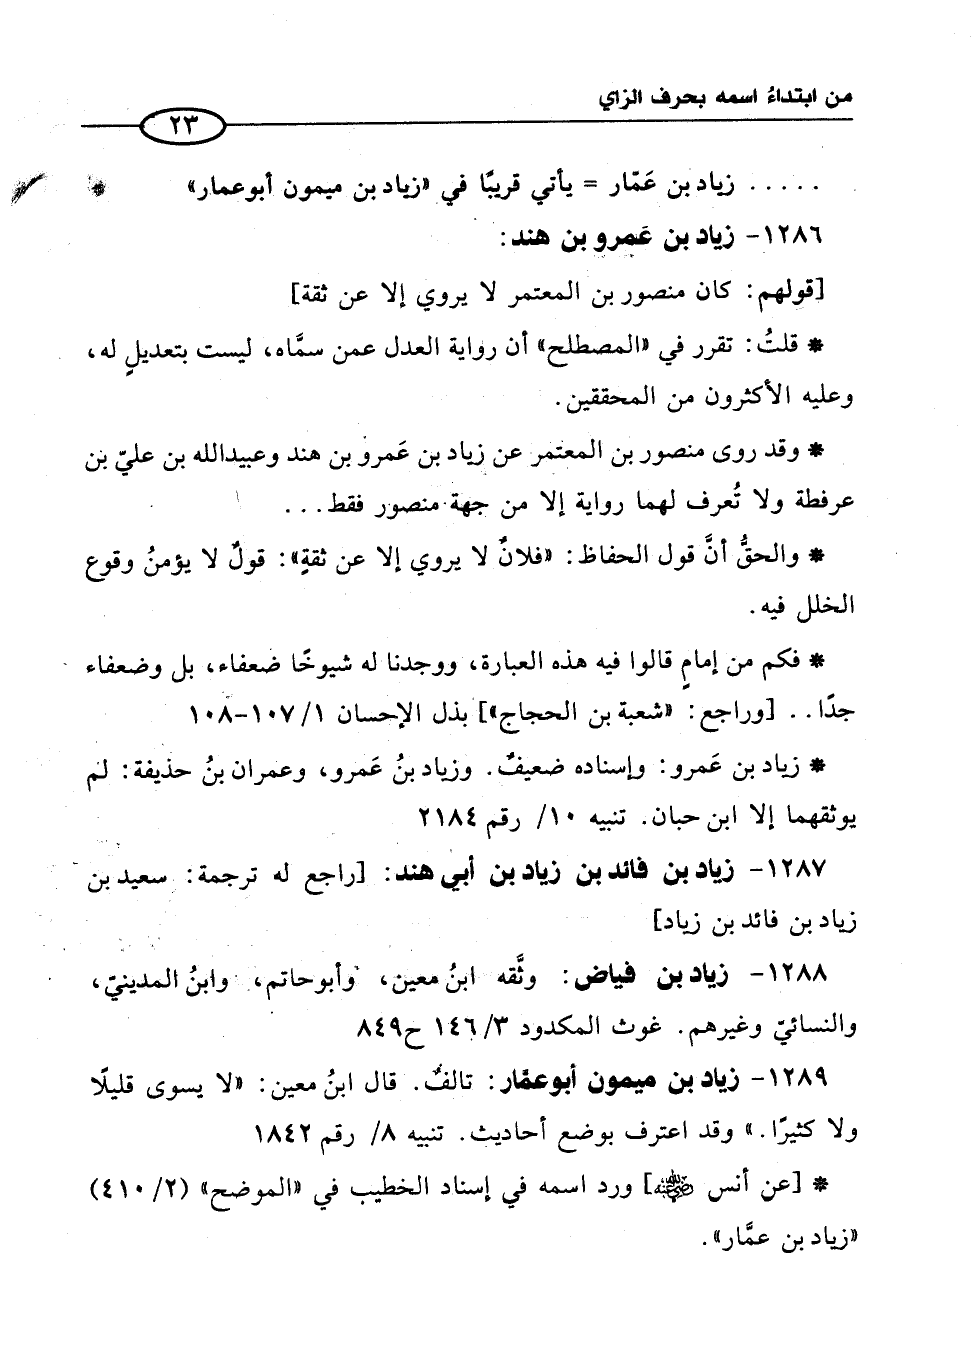 من ابتداءُ اسمه بحرف الزاي
٢٣
..... زياد بن عَمّار = يأتي قريبًا في «زياد بن ميمون أبوعمار» *
١٢٨٦- زياد بن عَمرو بن هند:
[قولهم: كان منصور بن المعتمر لا يروي إلا عن ثقة]
* قلتُ: تقرر في «المصطلح» أن رواية العدل عمن سمَّاه، ليست بتعديلٍ له،
وعليه الأكثرون من المحققين.
* وقد روى منصور بن المعتمر عن زياد بن عَمرو بن هند وعبيدالله بن عليّ بن
عرفطة ولا تُعرف لهما رواية إلا من جهة منصور فقط...
* والحقُّ أنَّ قول الحفاظ: «فلانٌ لا يروي إلا عن ثقةٍ»: قولٌ لا يؤمنُ وقوع
الخلل فيه.
* فكم من إمامٍ قالوا فيه هذه العبارة، ووجدنا له شيوخًا ضعفاء، بل وضعفاء
جدًا.. [وراجع: «شعبة بن الحجاج»] بذل الإحسان ١/ ١٠٧-١٠٨
* زياد بن عَمرو: وإسناده ضعيفٌ. وزياد بنُ عَمرو، وعمران بنُ حذيفة: لم
يوثقهما إلا ابن حبان. تنبيه ١٠/ رقم ٢١٨٤
١٢٨٧- زياد بن فائد بن زياد بن أبي هند: [راجع له ترجمة: سعيد بن
زياد بن فائد بن زياد]
١٢٨٨- زياد بن فياض: وثَّقه ابنُ معين، وأبوحاتم، وابنُ المدينيّ،
والنسائيّ وغيرهم. غوث المكدود ٣/ ١٤٦ ح٨٤٩
١٢٨٩- زياد بن ميمون أبوعمَّار: تالفٌ. قال ابنُ معين: «لا يسوى قليلًا
ولا كثيرًا.» وقد اعترف بوضع أحاديث. تنبيه ٨/ رقم ١٨٤٢
* [عن أنس رضي الله عنه] ورد اسمه في إسناد الخطيب في «الموضح» (٢/ ٤١٠)
«زياد بن عمَّار».